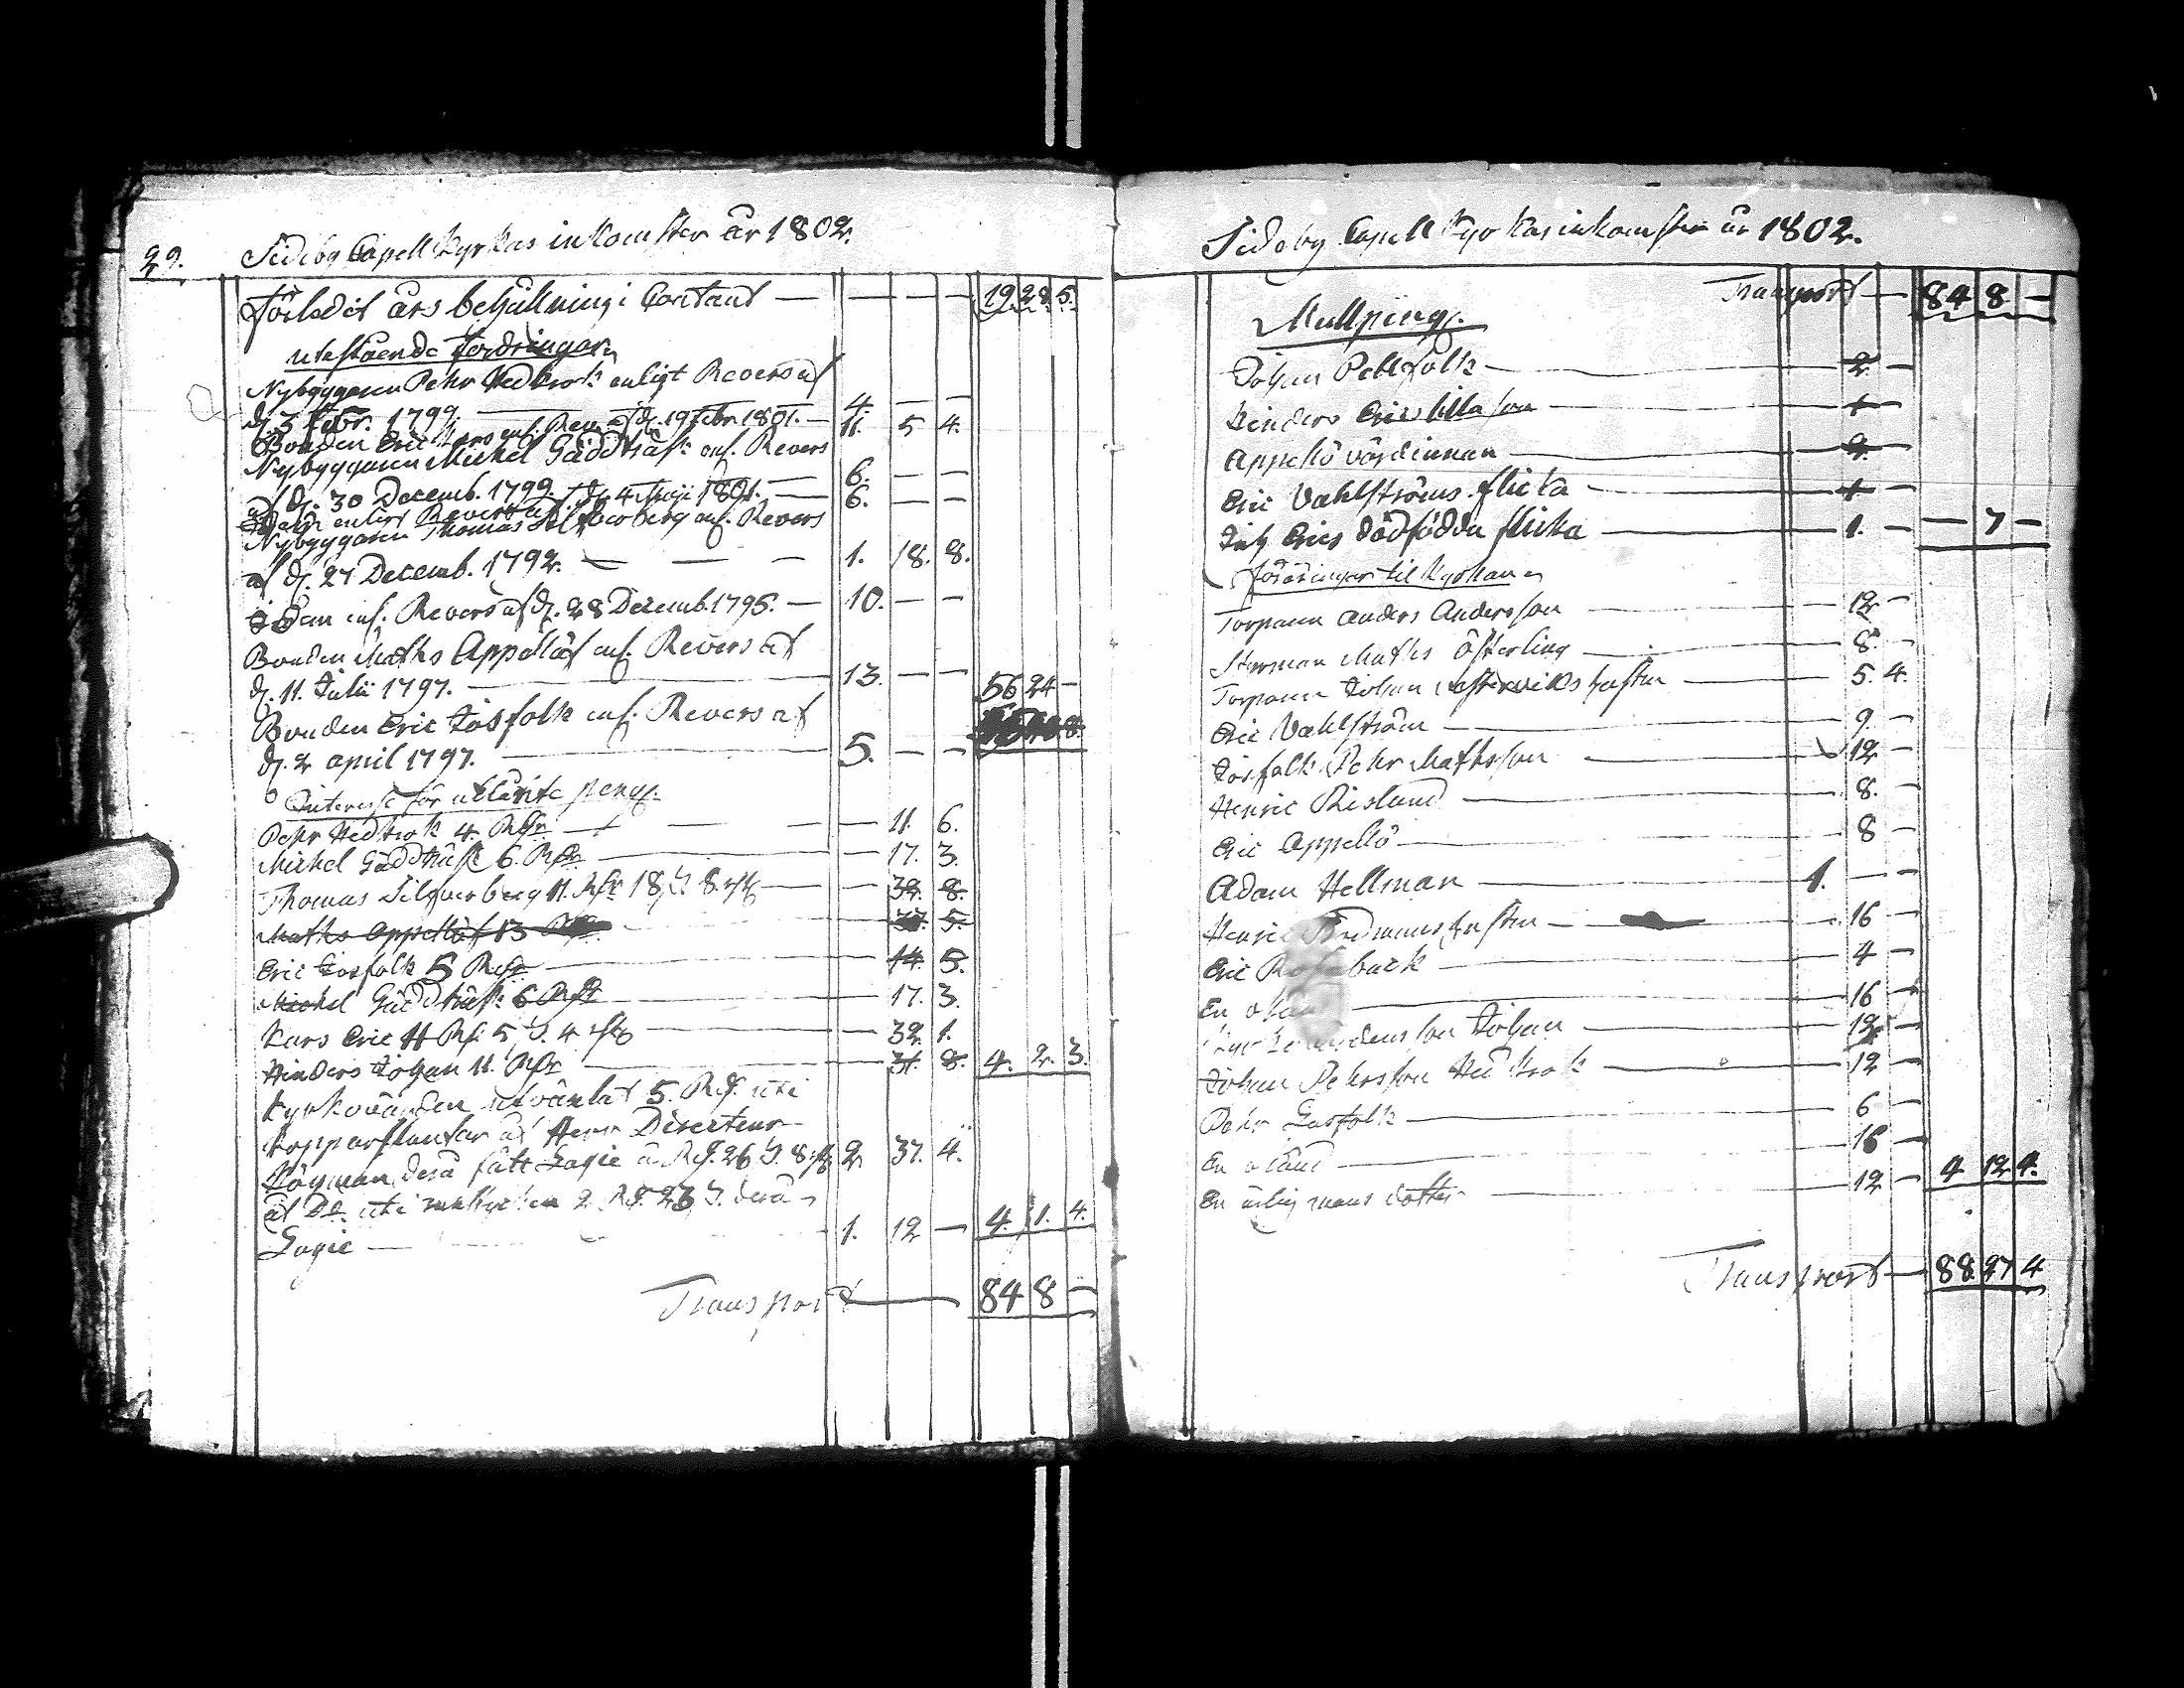 29. Sideby Capell Kyrkas inkomster År 1802.
Förledit års behållning i Contant — — — — 19. 28. 5.
utestående fordringar
Nybyggaren Pehr Hedkrok enligt Revers af
d. 3 Febr. 1799. — 4. — —
Bonden Eric Lars enl. Revers af d. 19 Febr. 1801. — 11. 5 4.
Nybyggaren Michel Gäddträsk enl. Revers
af d. 30 Decemb. 1799. — 6. — —
Dito enligt Revers af d. 4 Maji 1801. — 6. — —
Nybyggaren Thomas Silfverberg enl. Revers
af d. 27 Decemb. 1792. — — — 1. 18. 8.
Dito enl. Revers af d. 28 Decemb. 1795. — 10. — —
Bonden Maths Appellöf enl. Revers af
d. 11. Julii 1797. — 13. — — 56 24 —
Bonden Eric Josfolk enl. Revers af
d. 2 april 1797. — 5. — —
Interesse för utlånte peng.
Pehr Hedkrok 4. Rdr — — — — 11. 6.
Michel Gäddträsk 6. Rdr — — 17. 3.
Thomas Silfverberg 11. Rdr 18 S. 8 rst — — 32. 8.
Maths Appellöf 13 5.
Eric Josfolk 5 Rdr — 14. 5.
Michel Gäddträsk 6 Rdr — 17. 3.
Lars Eric 11 Rd. 5 S. 4 rst — 32. 1.
Hinders Johan 11. Rdr — 31. 8. 4. 2. 3.
Kyrkovärden 5. Rd. uti
kopparslantar åt Herr Directeur
fått Lagie a Rd. 26 S. 8 2 37. 4.
åt Do. uti 2 Rd. 23 S.
Lagie — 1. 12 — 4. 1. 4.
Transport — 84 8 —
Sideby Capell Kyrkas inkomster år 1802.
Transport — 84 8 —
Mullpeng.
Johan Pellfolk — 2. —
Hinders Erics lilla son — 1 —
Appellö värdinnan — 2. —
Eric Vahlströms flicka — 1 —
Erics dödfödda flicka — 1. — — 7 —
föräringar til Kyrkan
Torparen Anders Andersson — 12 —
Styrman Maths Österling — 8. —
Torparen Johan hustru — 5. 4.
Eric Vahlström — 9. —
Josfolk Pehr Mathsson — 12 —
Henric Rislund — 8. —
Eric Appellö — 8 —
Adam Hellman — 1. — —
Henric hustru — 16
Eric back — 4 —
En 16 —
son Johan — 12 —
Johan Pehrsson Hedkrok — 12 —
Pehr Lasfolk — 6 —
En okänd — 16 —
En ärlig mans dotter — 12 — 4 12 4.
Transport — 88 27 4